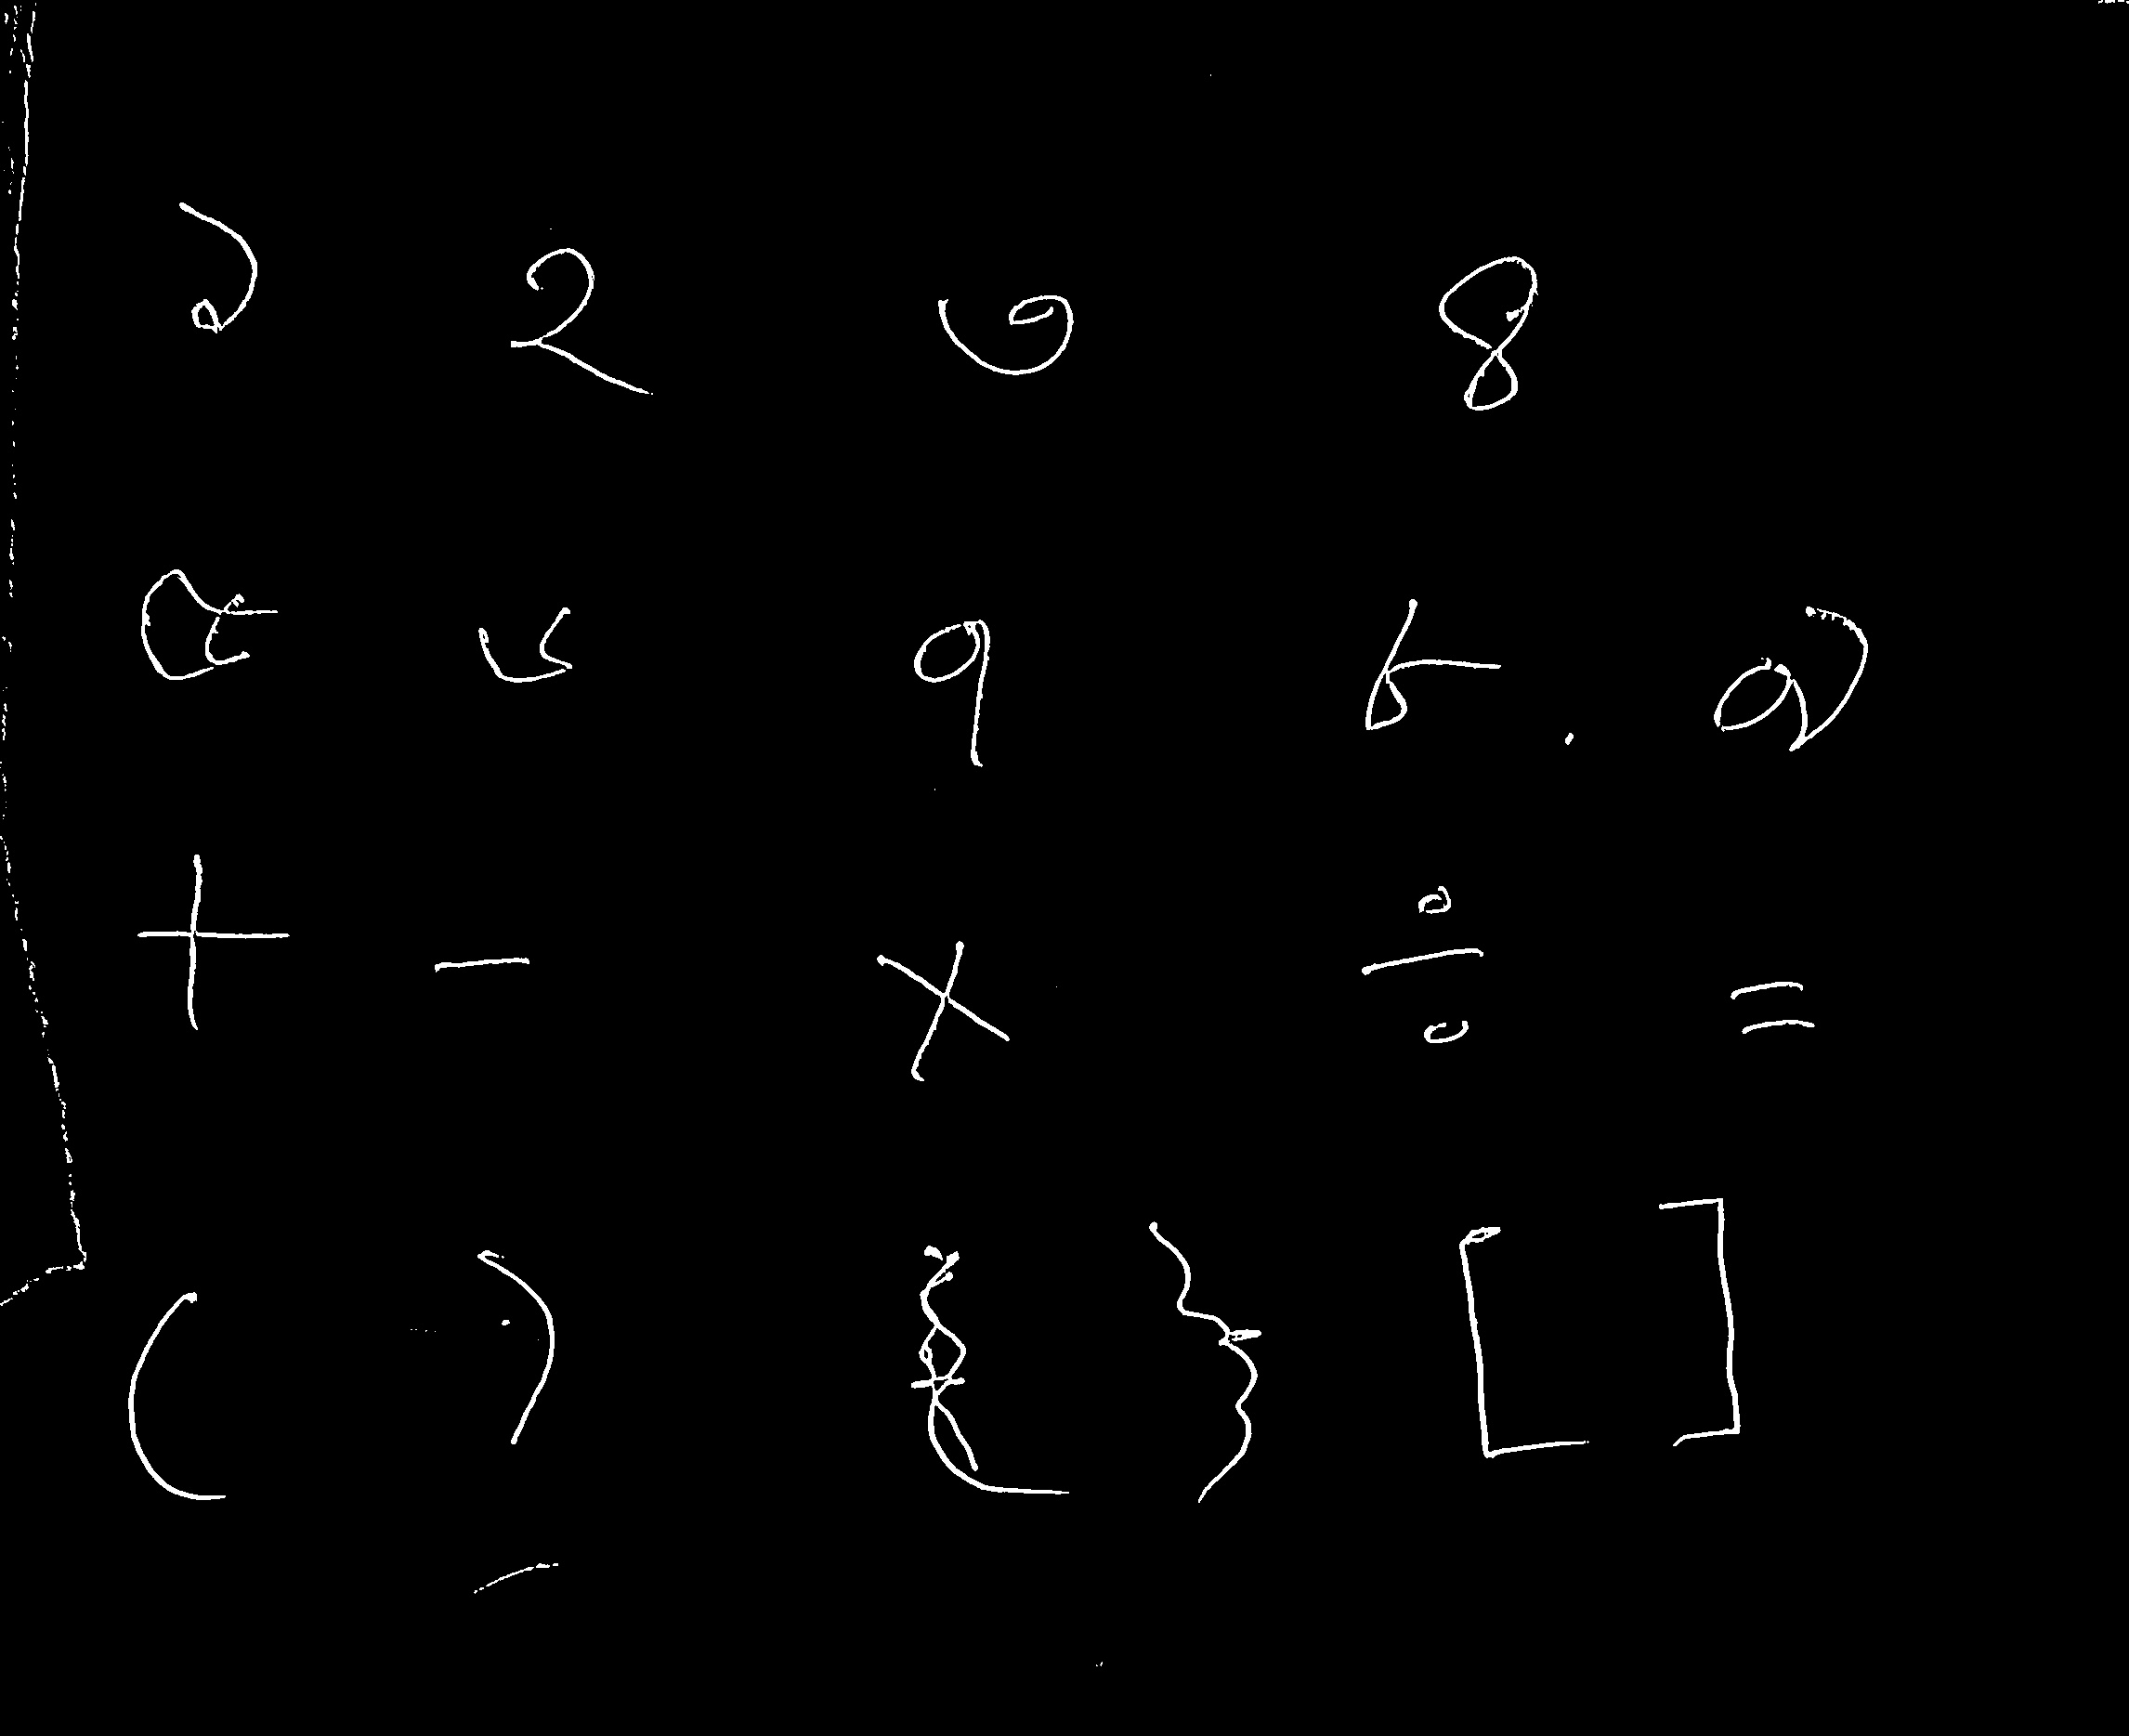 ১ ২ ৩ ৪
৫ ৬ ৭ ৮ . ৯
+ - × ÷ =
( ) { } [ ]